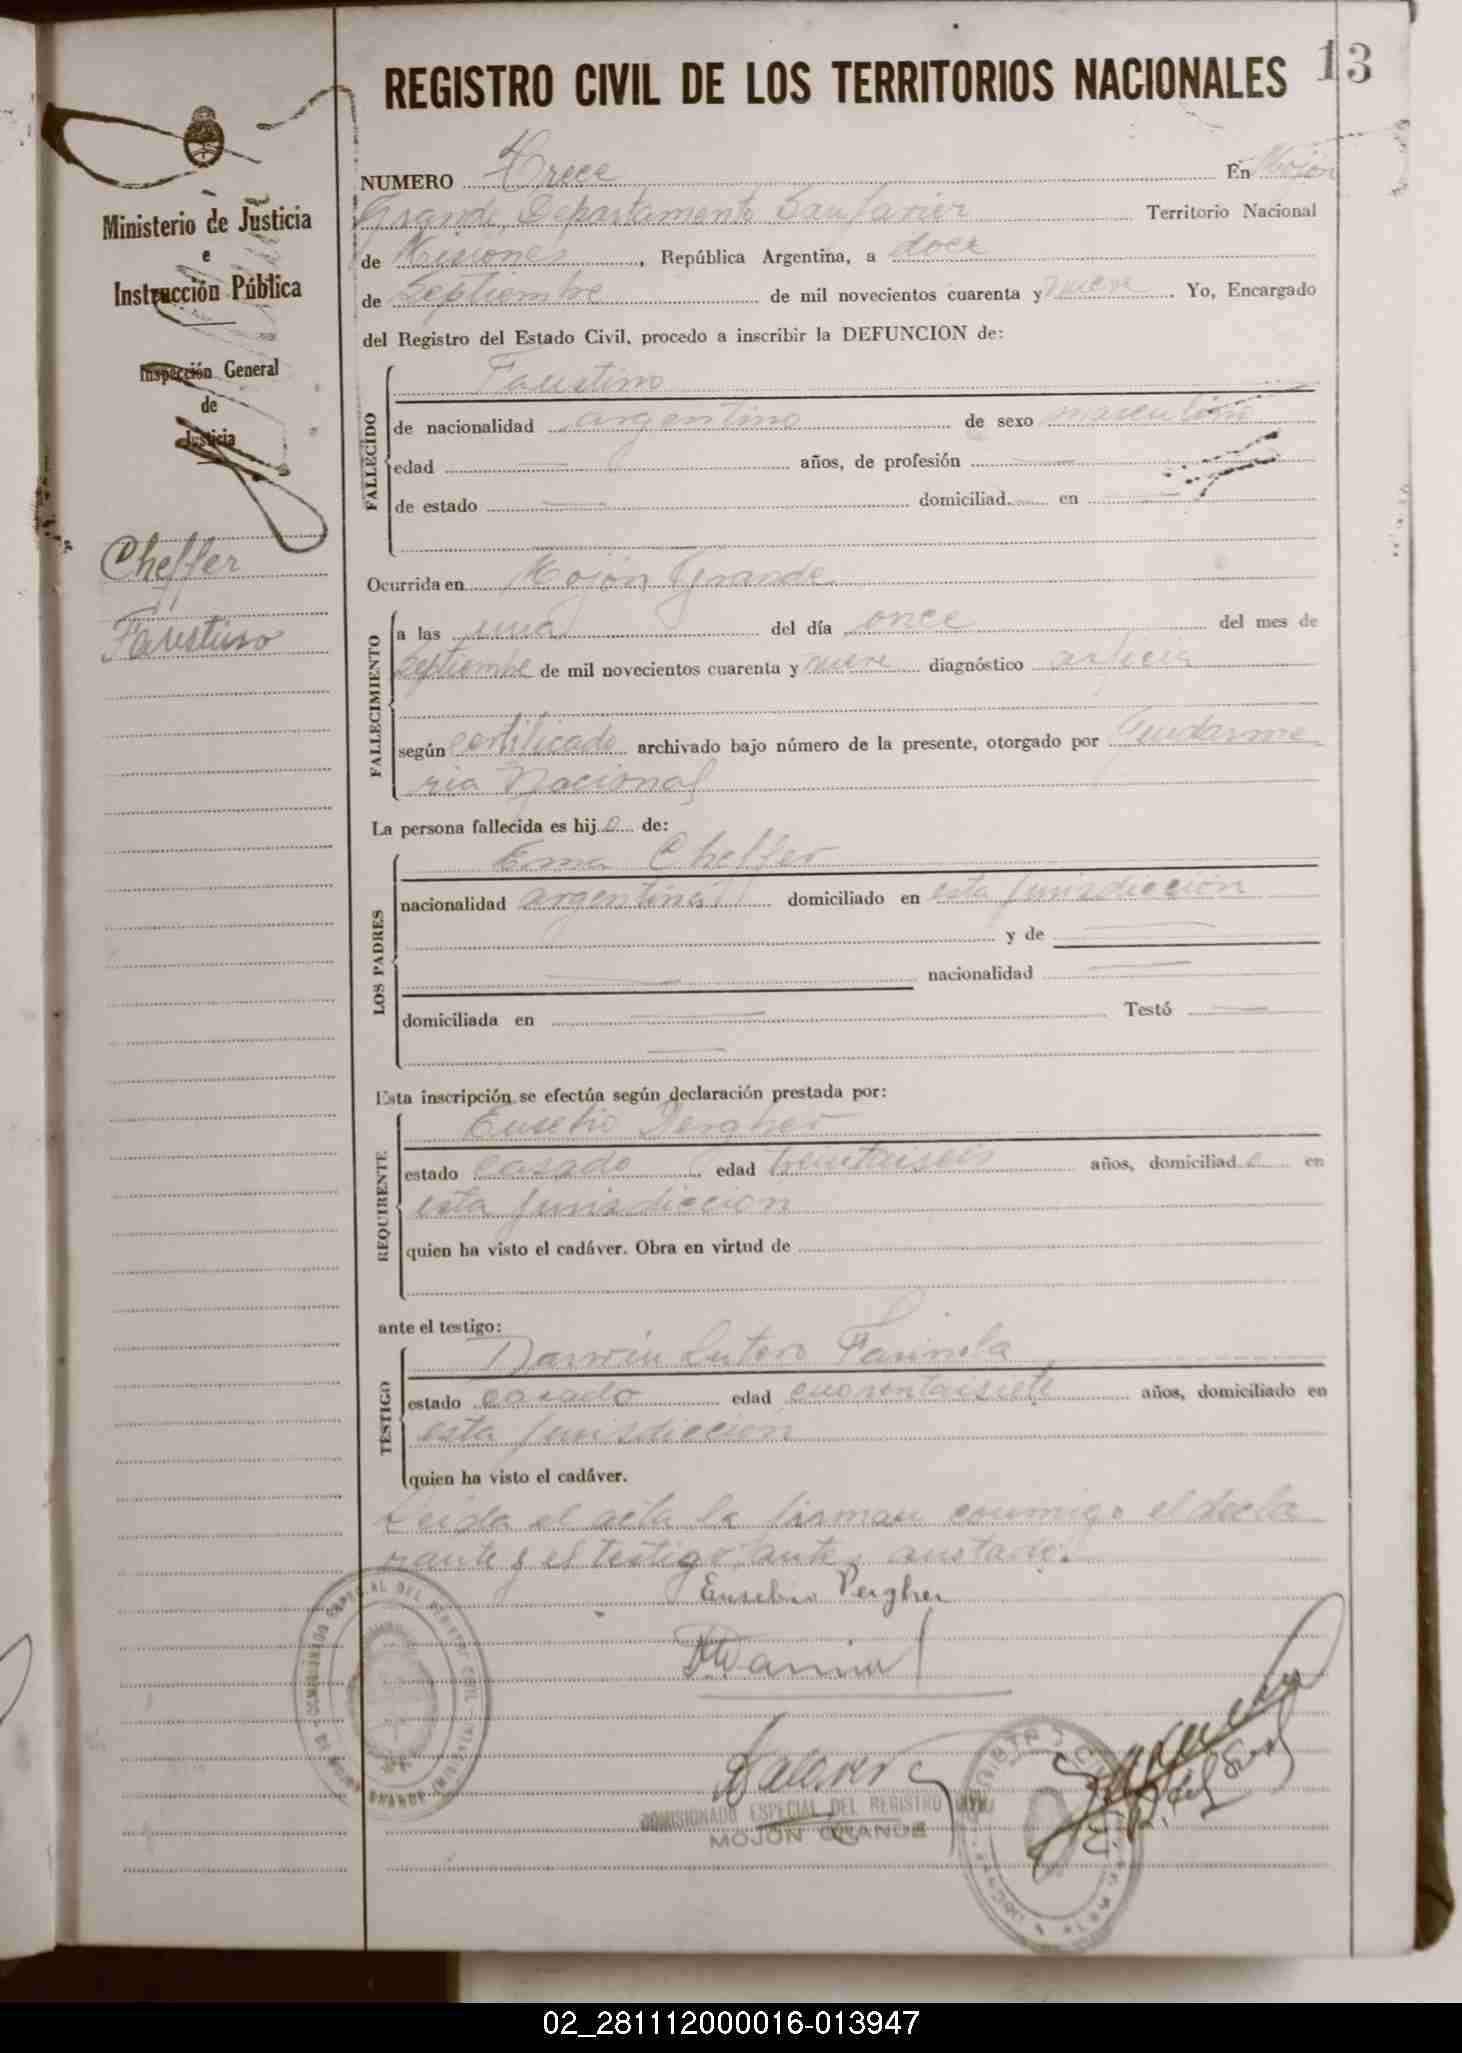 REGISTRO CIVIL DE LOS TERRITORIOS NACIONALES
13
Ministerio de Justicia
e
Instrucción Pública
Inspección General
de
Justicia
Cheffer
Faustino
NUMERO Trece En Mojón
Grande, Departamento San Javier Territorio Nacional
de Misiones, República Argentina, a doce
de Septiembre de mil novecientos cuarenta y nueve. Yo, Encargado
del Registro del Estado Civil, procedo a inscribir la DEFUNCION de:
FALLECIDO
Faustino
de nacionalidad argentino de sexo masculino
edad — años, de profesión —
de estado — domiciliad en —
Ocurrida en Mojón Grande
FALLECIMIENTO
a las una del día once del mes de
Septiembre de mil novecientos cuarenta y nueve diagnóstico
según certificado archivado bajo número de la presente, otorgado por Gendarme
ria Nacional
La persona fallecida es hijo de:
LOS PADRES
Ema Cheffer
nacionalidad argentina domiciliado en esta jurisdicción
y de —
— nacionalidad —
domiciliada en — Testó —
—
Esta inscripción se efectúa según declaración prestada por:
REQUIRENTE
Eusebio Pergher
estado casado edad treintaiseis años, domiciliado en
esta jurisdiccion
quien ha visto el cadáver. Obra en virtud de
ante el testigo:
TESTIGO
Darwin Lutero
estado casado edad cuorentaisiete años, domiciliado en
esta jurisdiccion
quien ha visto el cadáver.
Leida el acta la firman conmigo el decla
rante y el testigo
Eusebio Pergher
COMISIONADO ESPECIAL DEL REGISTRO CIVIL
MOJON GRANDE
02_281112000016-013947